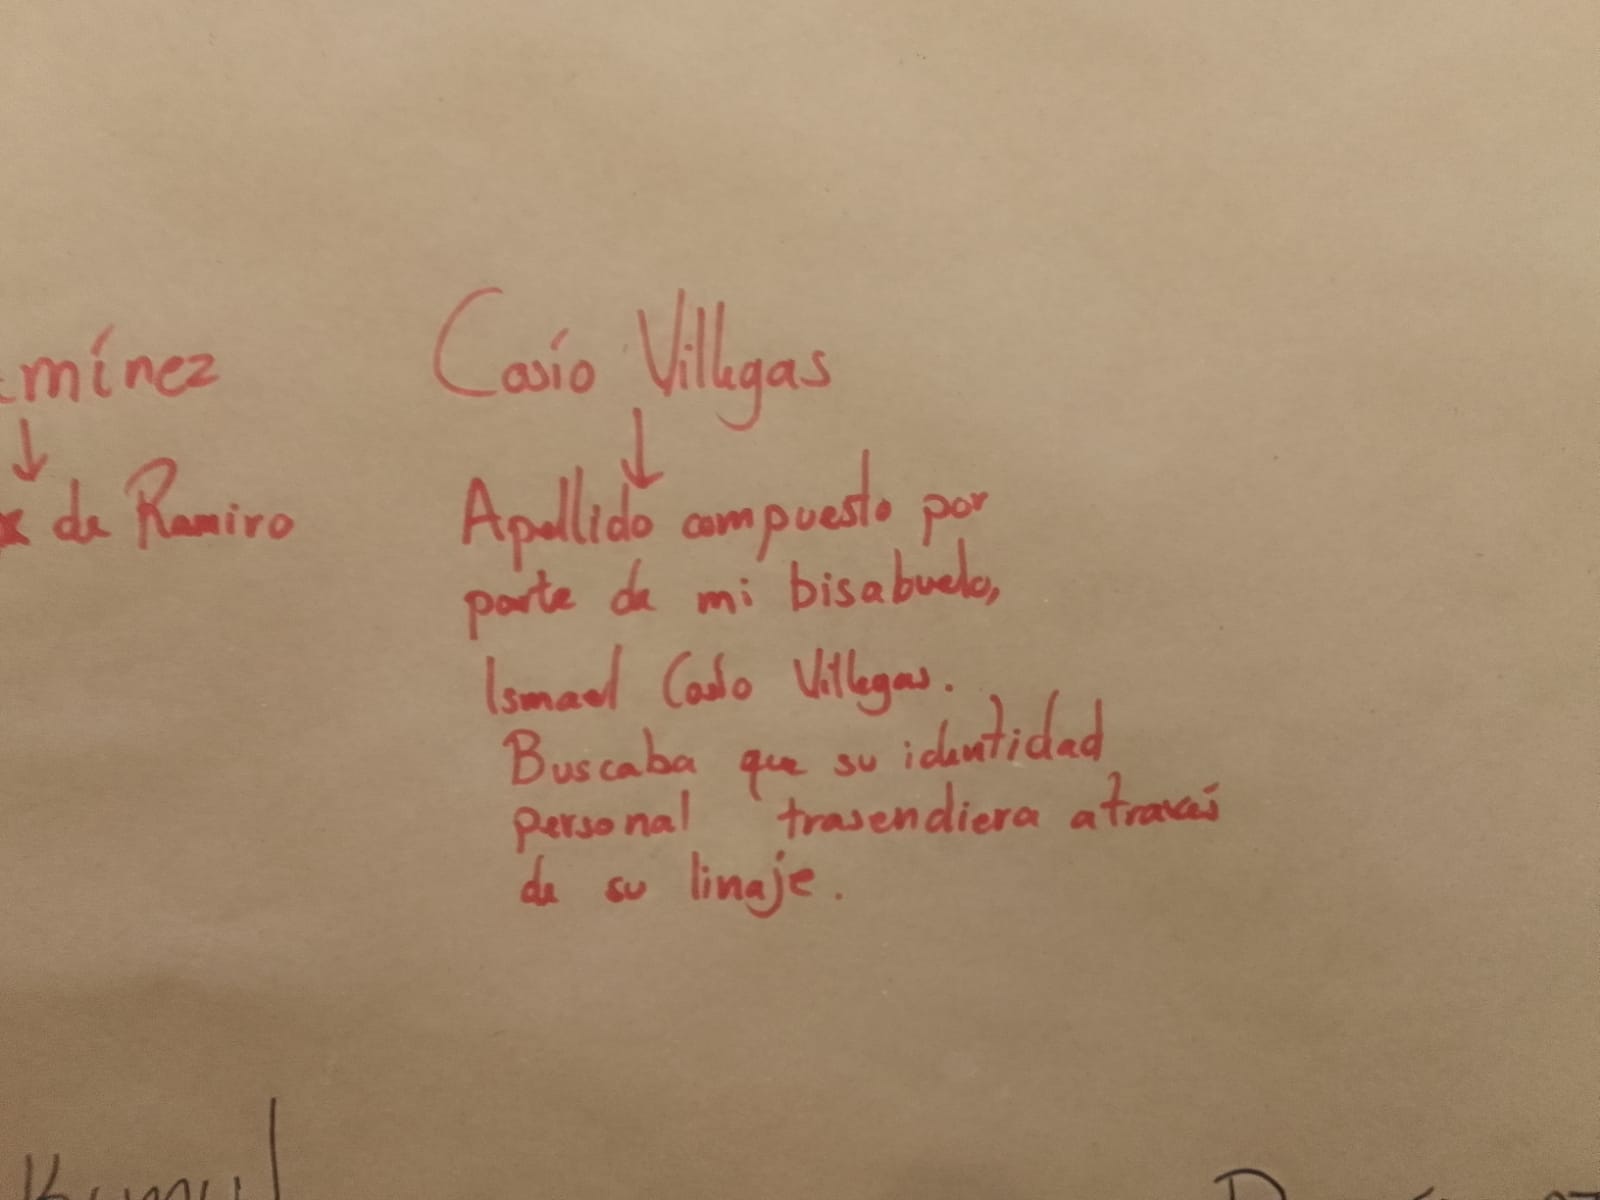 mínez
de Ramiro
Casío Villegas
Apellido compuesto por
parte de mi bisabuelo,
Ismael Casío Villegas.
Buscaba que su identidad
personal trasendiera através
de su linaje.